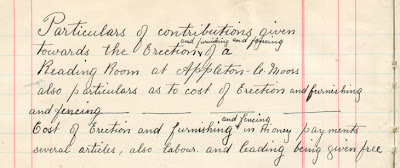 Particulars of contributions given
towards the Erection and furnishing and fencing of a
Reading Room at Appleton-le-Moors
also particulars as to cost of Erection and furnishing
and fencing
Cost of Erection and furnishing and fencing in money payments
several articles, also labour and leading being given free